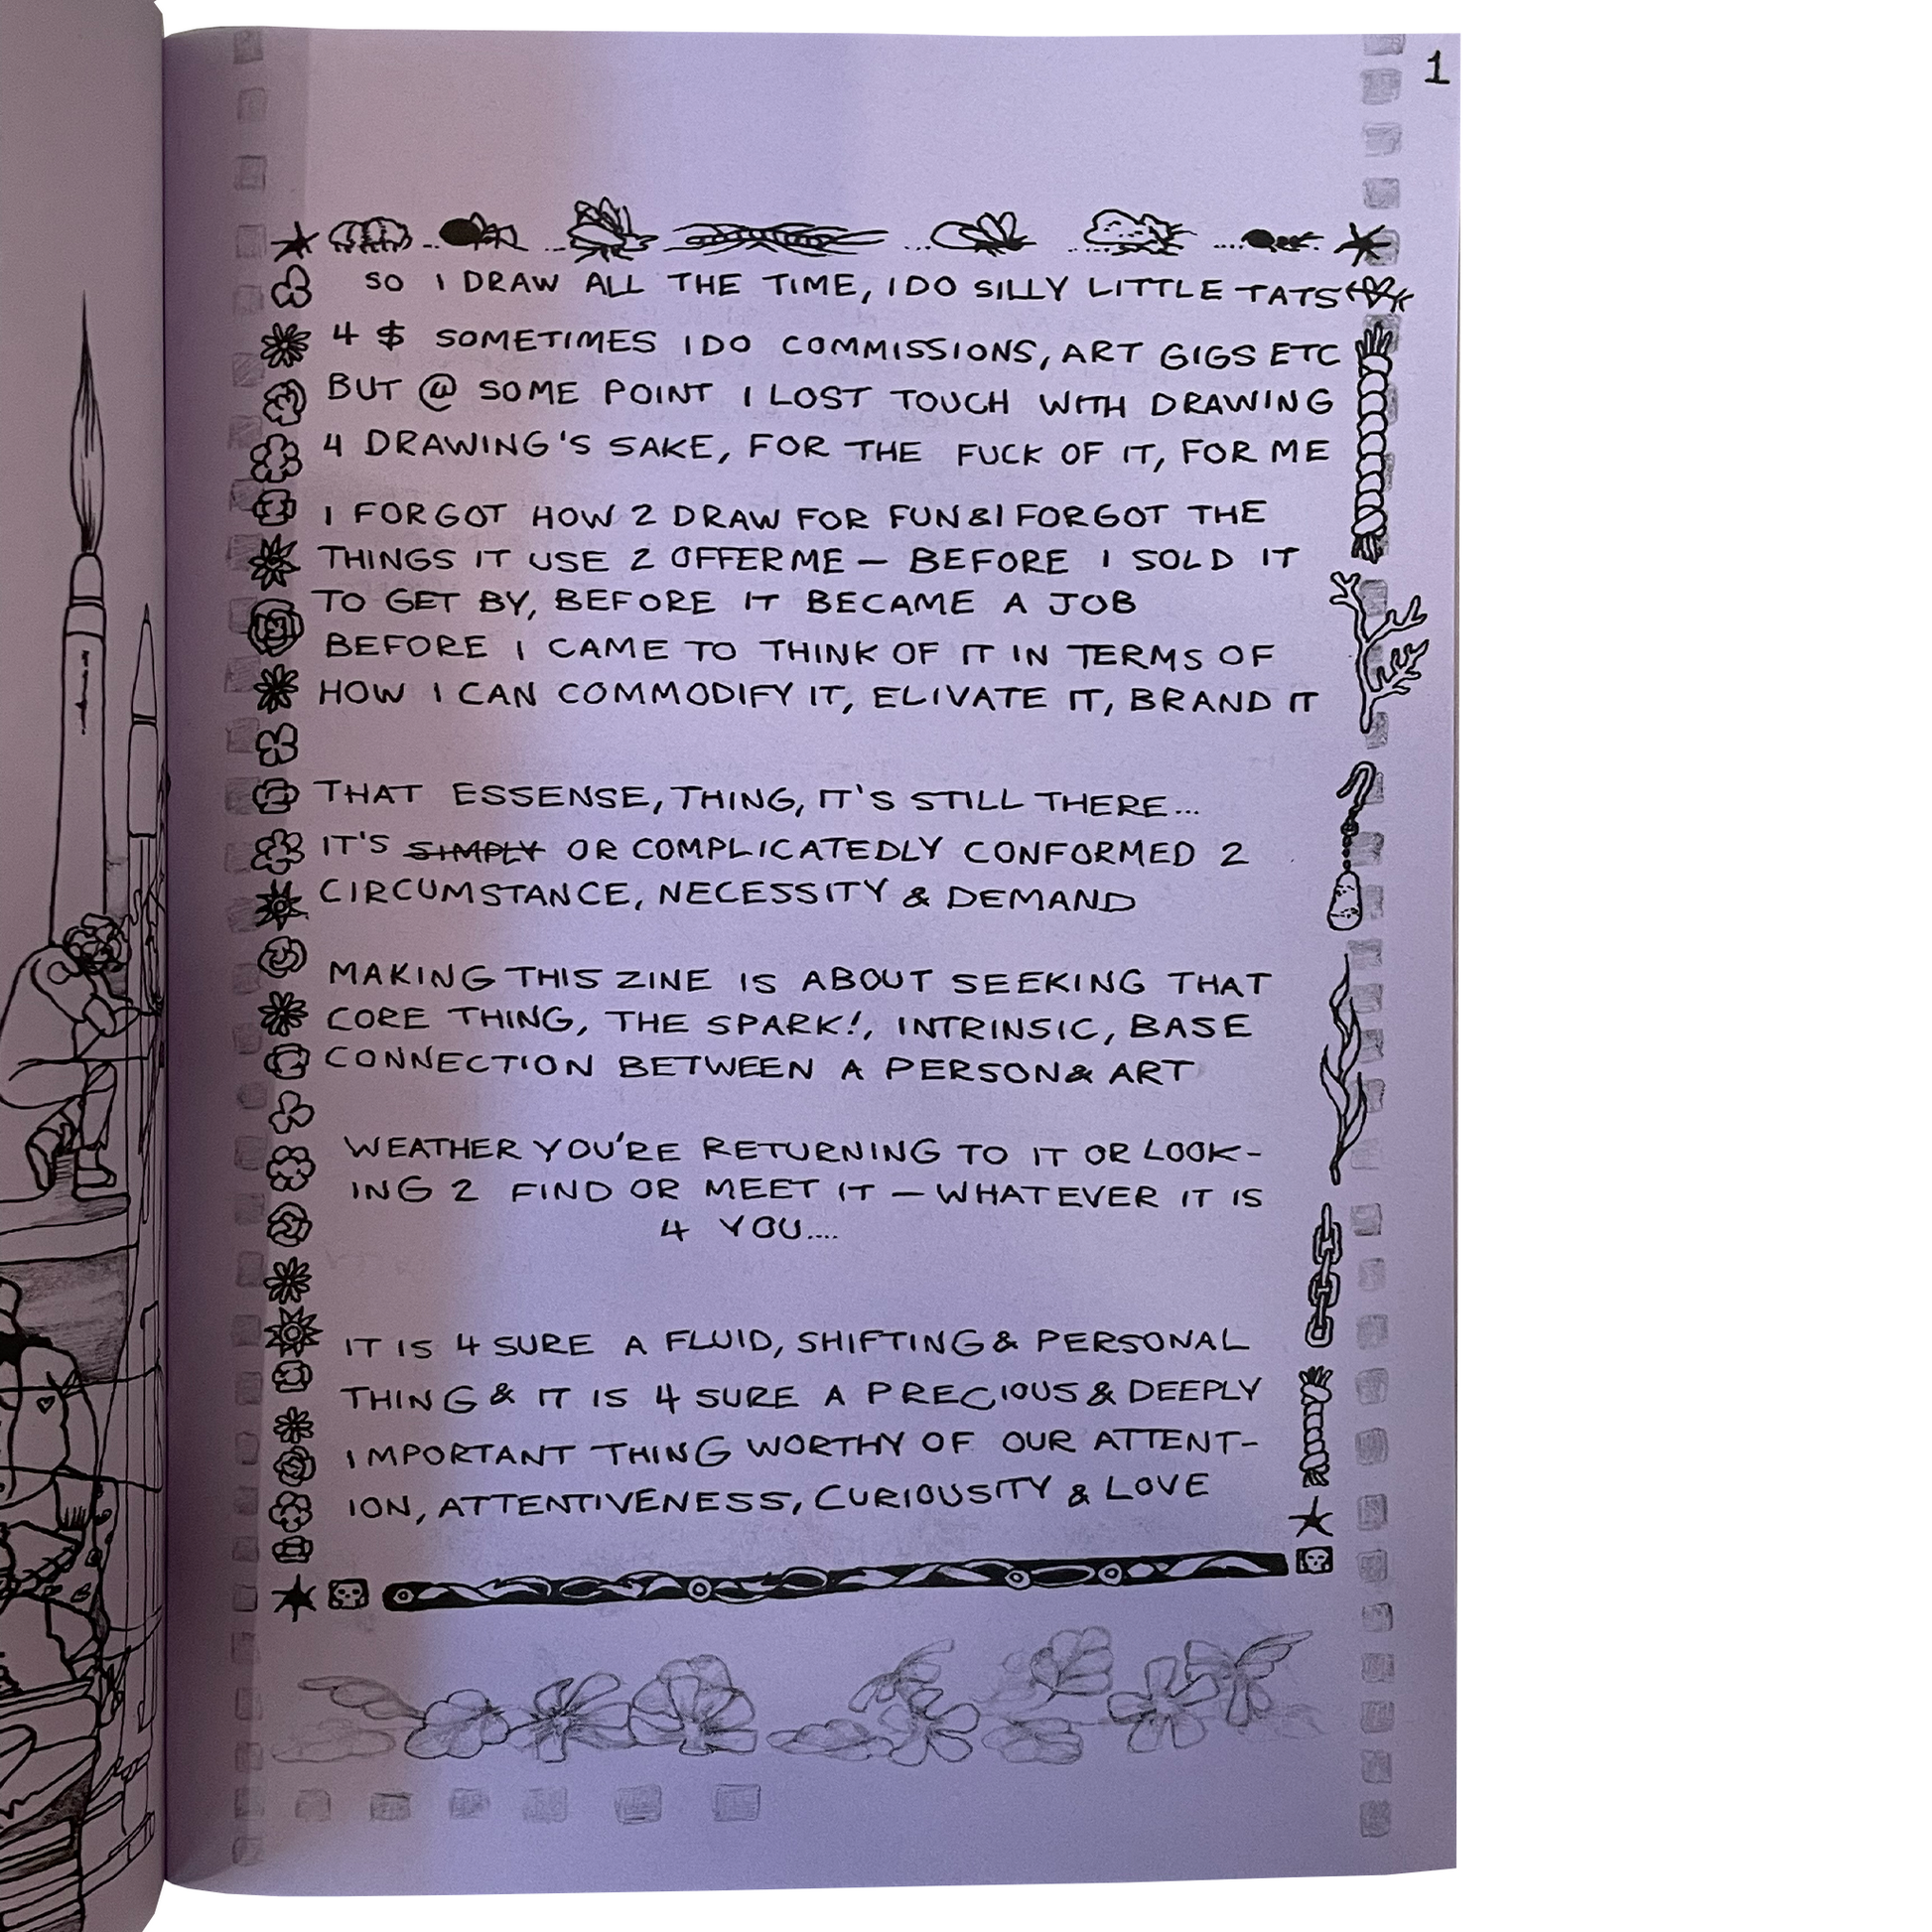 1
SO I DRAW ALL THE TIME, I DO SILLY LITTLE TATS
4 $ SOMETIMES I DO COMMISSIONS, ART GIGS ETC
BUT @ SOME POINT I LOST TOUCH WITH DRAWING
4 DRAWING'S SAKE, FOR THE FUCK OF IT, FOR ME
I FORGOT HOW 2 DRAW FOR FUN & I FORGOT THE
THINGS IT USE 2 OFFER ME — BEFORE I SOLD IT
TO GET BY, BEFORE IT BECAME A JOB
BEFORE I CAME TO THINK OF IT IN TERMS OF
HOW I CAN COMMODIFY IT, ELIVATE IT, BRAND IT
THAT ESSENSE, THING, IT'S STILL THERE...
IT'S SIMPLY OR COMPLICATEDLY CONFORMED 2
CIRCUMSTANCE, NECESSITY & DEMAND
MAKING THIS ZINE IS ABOUT SEEKING THAT
CORE THING, THE SPARK!, INTRINSIC, BASE
CONNECTION BETWEEN A PERSON & ART
WEATHER YOU'RE RETURNING TO IT OR LOOK-
ING 2 FIND OR MEET IT — WHATEVER IT IS
4 YOU....
IT IS 4 SURE A FLUID, SHIFTING & PERSONAL
THING & IT IS 4 SURE A PRECIOUS & DEEPLY
IMPORTANT THING WORTHY OF OUR ATTENT-
ION, ATTENTIVENESS, CURIOUSITY & LOVE